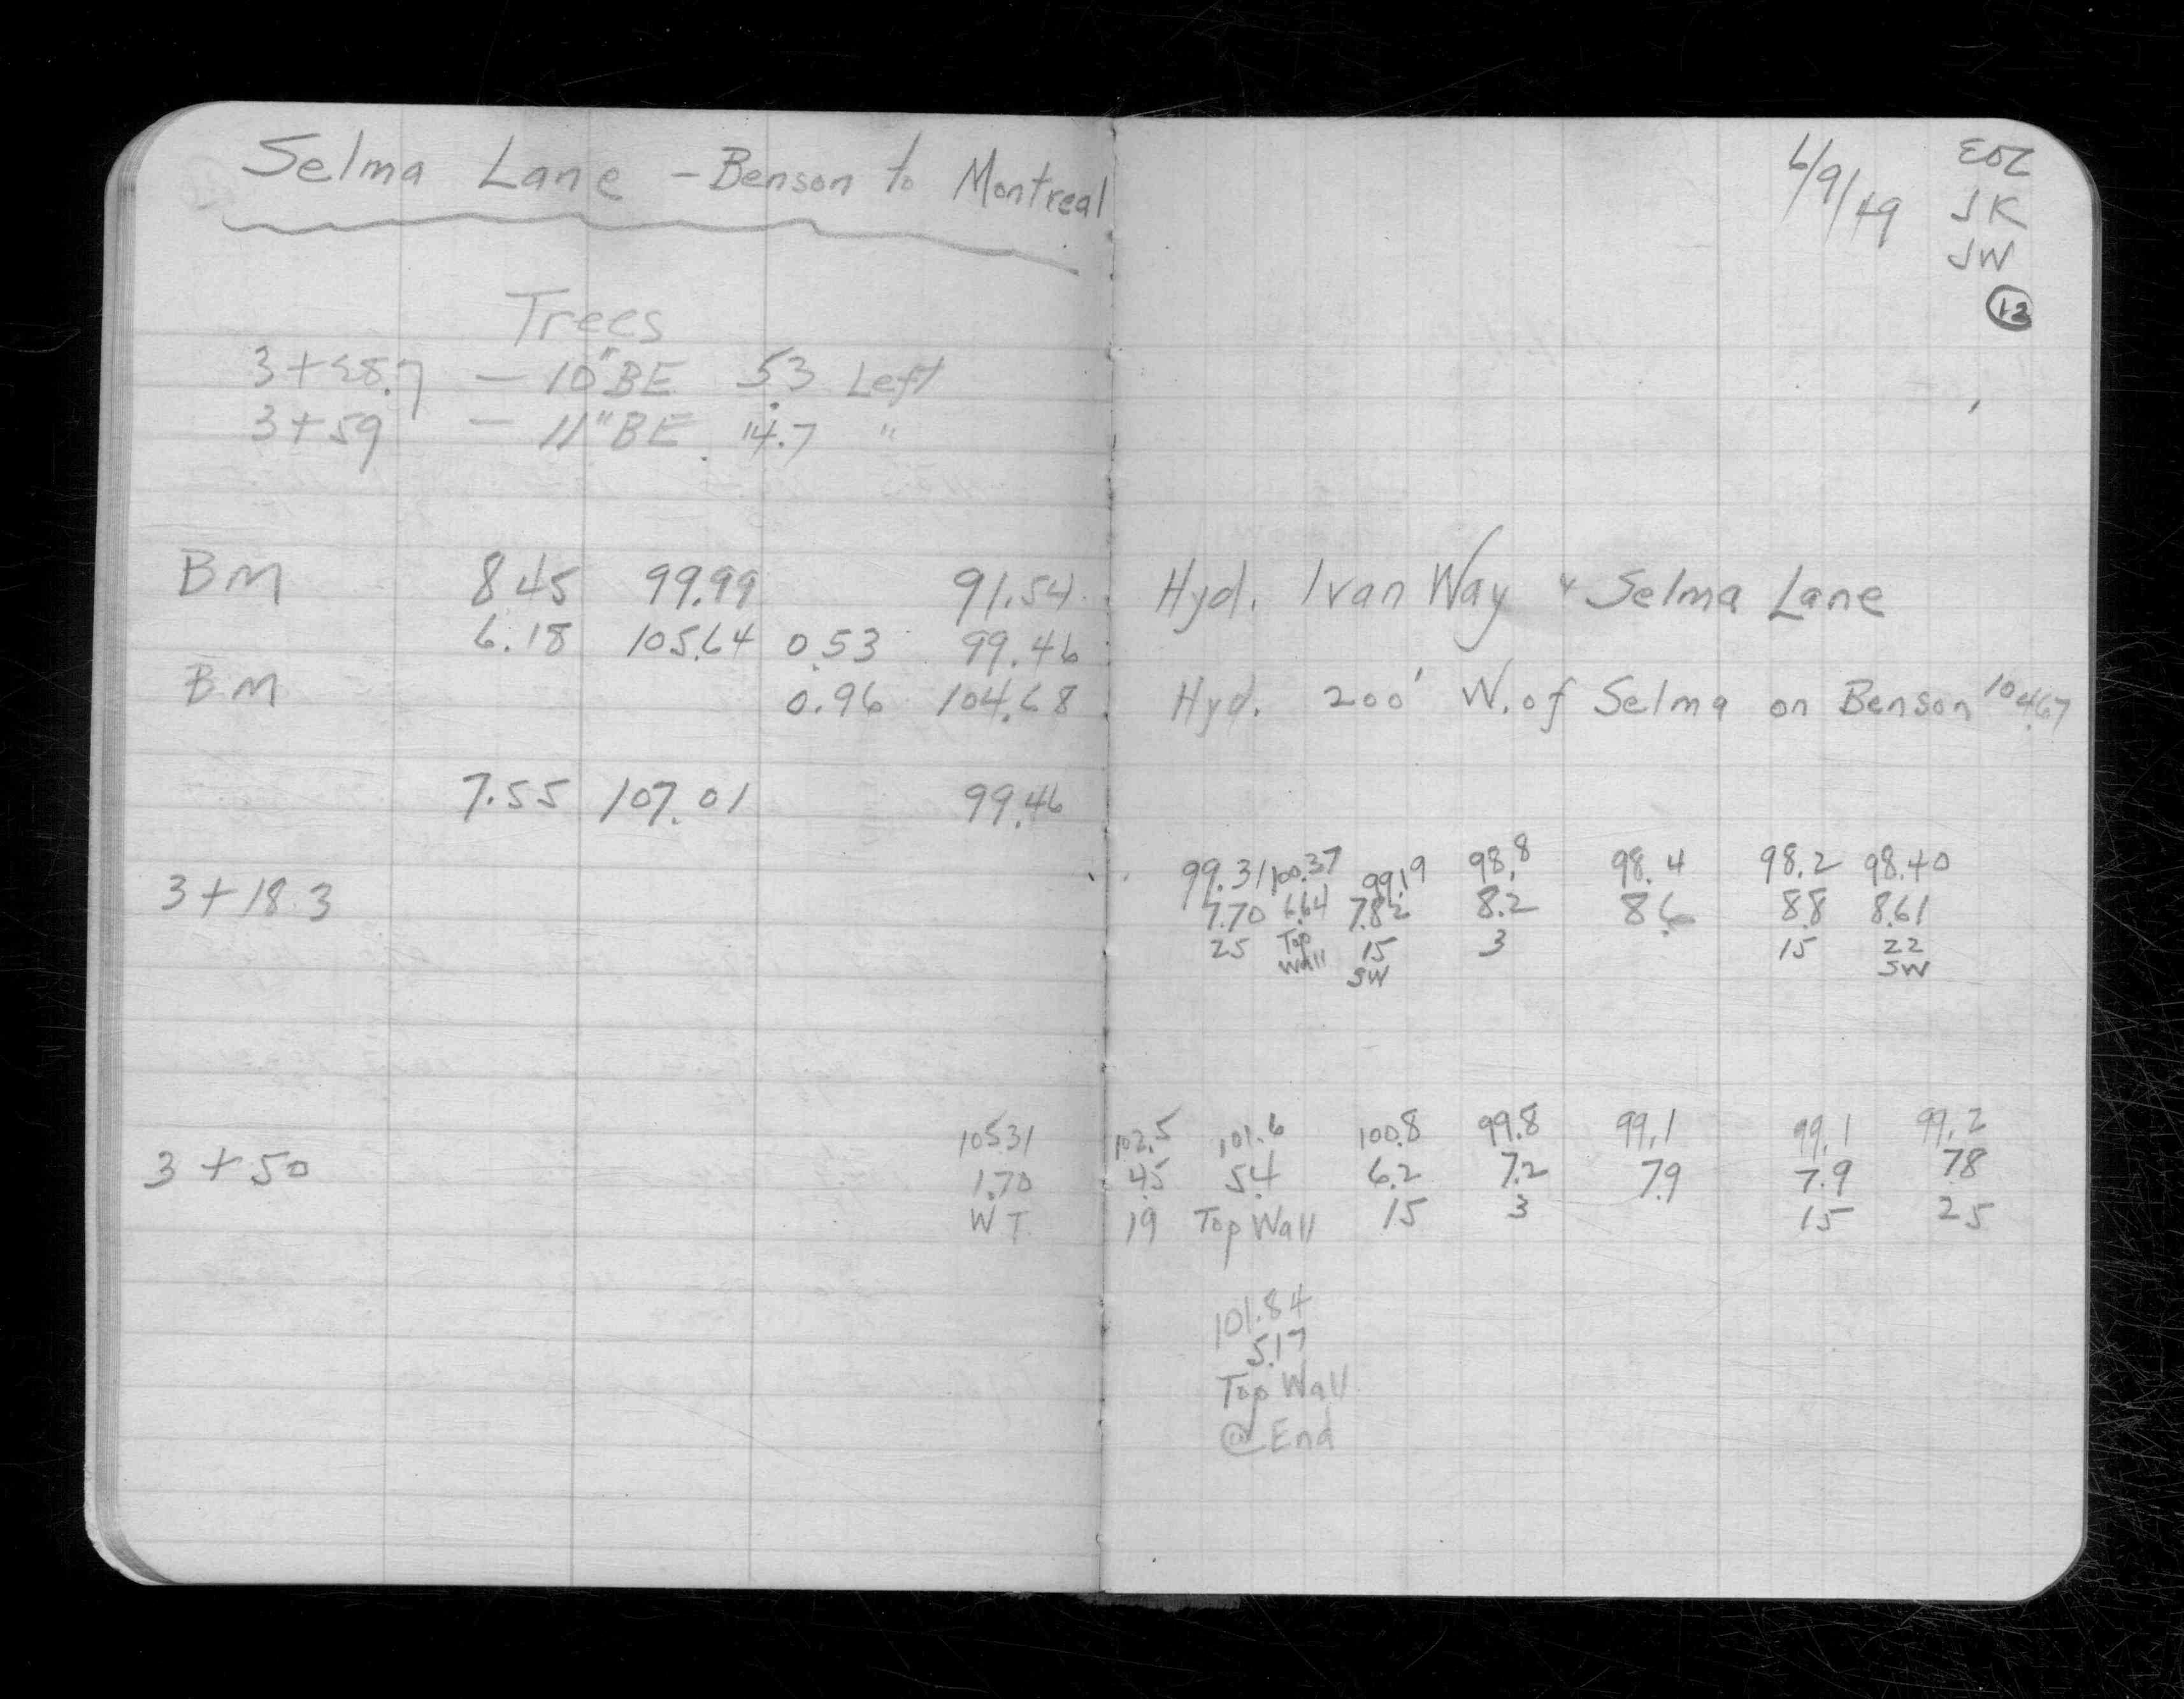 Selma Lane - Benson to Montreal
6/9/49
JK
JW
12
Trees
— 10" BE 5.3 Left
3+59 — 11" BE 14.7 "
BM 8.45 99.99 91.54 Hyd. Ivan Way & Selma Lane
6.18 105.64 0.53 99.46
BM 0.96 104.68 Hyd. 200' W. of Selma on Benson 104.67
7.55 107.01 99.46
99.31 100.37 99.19 98.8 98.4 98.2 98.40
3+18.3 7.70 6.64 7.82 8.2 8.6 8.8 8.61
25 Top Wall 15 3 15 22
SW SW
105.31 102.5 101.6 100.8 99.8 99.1 99.1 99.2
3+50 1.70 4.5 5.4 6.2 7.2 7.9 7.9 7.8
WT 19 Top Wall 15 3 15 25
101.84
5.17
Top Wall
@ End